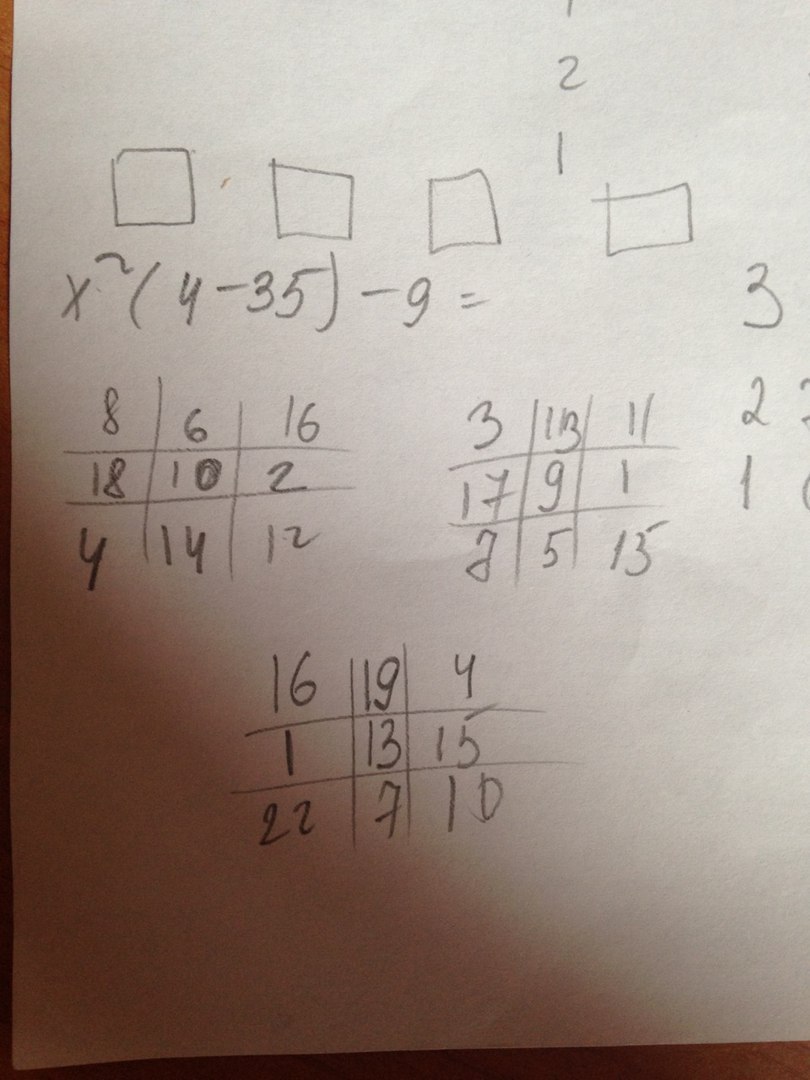 2
1
x²(4-35)-9=
3
8 6 16
18 10 2
4 14 12
3 13 11
17 9 1
7 5 15
2
1
16 19 4
1 13 15
22 7 10